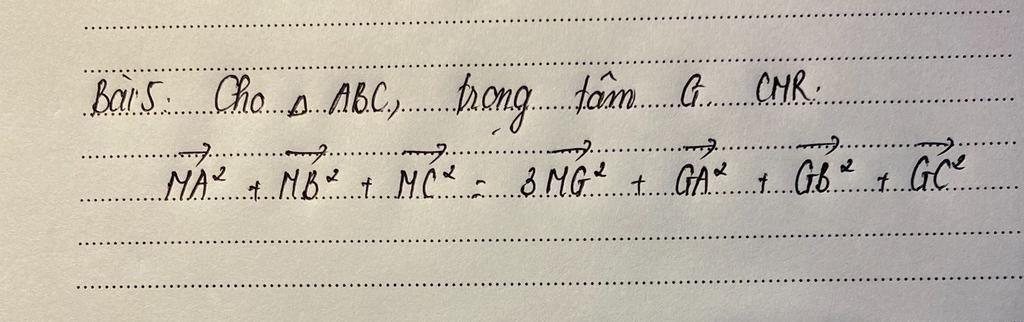 Bài 5: Cho △ ABC, trọng tâm G. CMR:
$\overrightarrow{MA}^2 + \overrightarrow{MB}^2 + \overrightarrow{MC}^2 = 3\overrightarrow{MG}^2 + \overrightarrow{GA}^2 + \overrightarrow{GB}^2 + \overrightarrow{GC}^2$